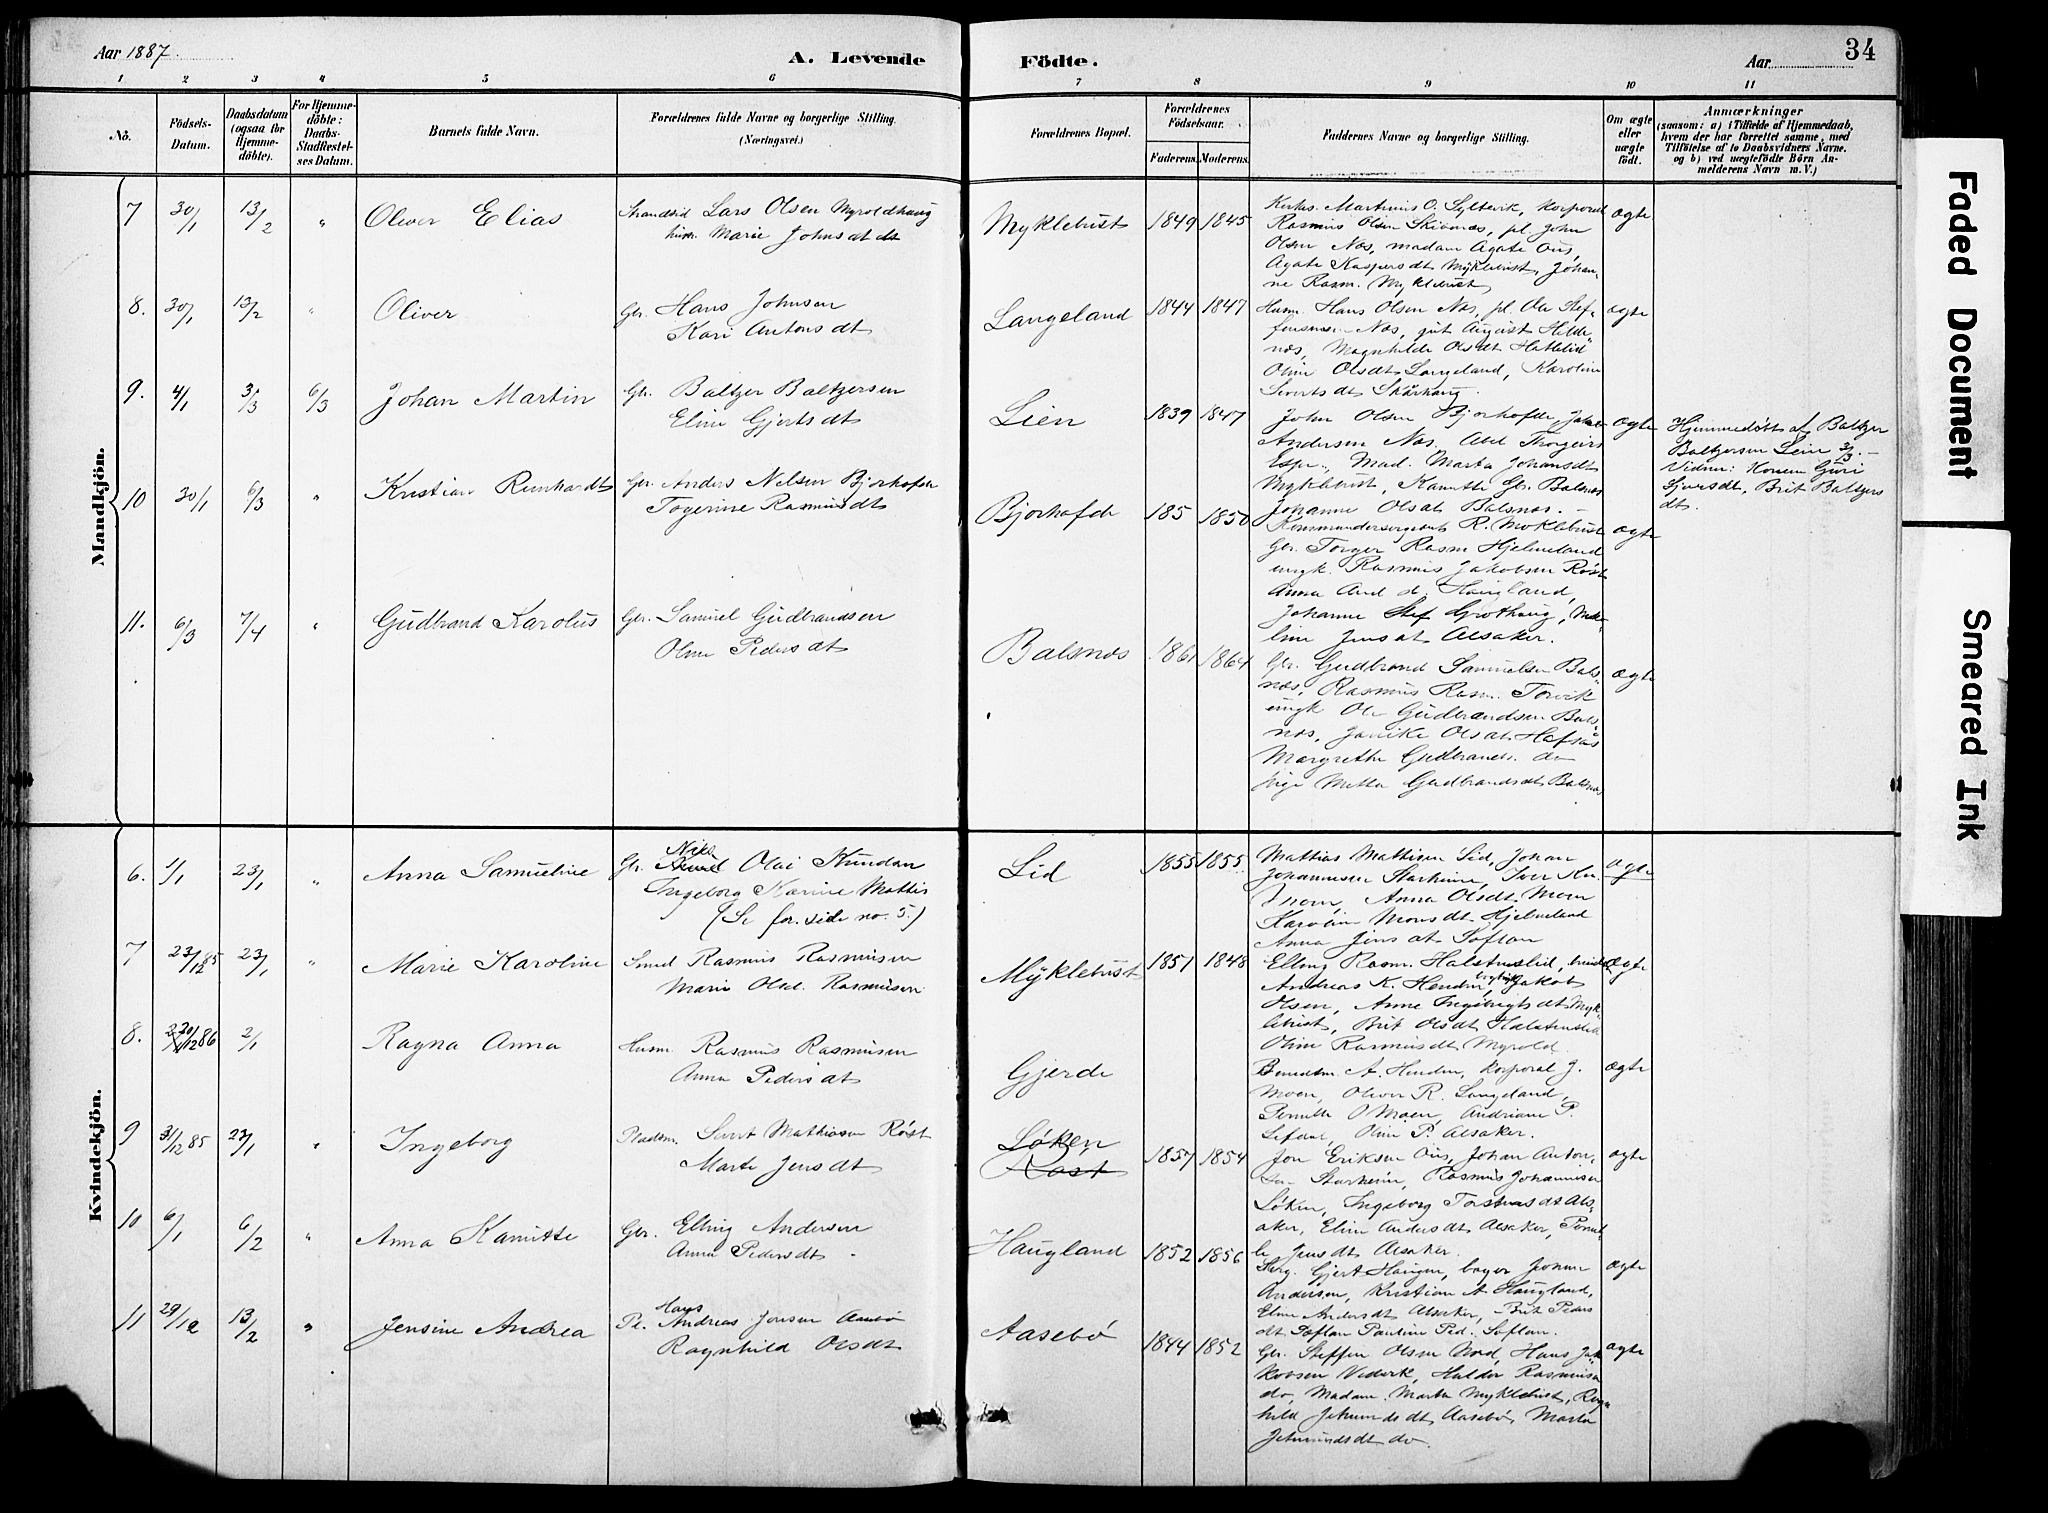 Aar 1887.
A. Levende Födte.
Aar
34
1 2 3 4 5 6 7 8 9 10 11
No.
Födsels-
Datum.
Daabsdatum
(ogsaa for
Hjemme-
döbte).
For Hjemme-
döbte:
Daabs-
Stadfæstel-
ses Datum.
Barnets fulde Navn.
Forældrenes fulde Navne og borgerlige Stilling.
(Næringsvei.)
Forældrenes Bopæl.
Forældrenes
Födselsaar.
Faderens. Moderens.
Faddernes Navne og borgerlige Stilling.
Om ægte
eller
uægte
födt.
Anmærkninger
(saasom: a) i Tilfælde af Hjemmedaab,
hvem der har forrettet samme, med
Tilföielse af to Daabsvidners Navne.
og b) ved uægtefödte Börn An-
melderens Navn m. V.)
Mandkjön.
7 30/1 13/2 " Oliver Elias
Strandsid Lars Olsen Myroldhaug
hust. Marie Johnsdt
Myklebust 1849 1845
Kirkes. Martinus O. Syltevik, Korporal
Rasmus Olsen Skivenæs, pl. John
Olsen Nos, madam Agate Ous,
Agate Kaspersdt Myklebust, Johan-
ne Rasm. Myklebust
ægte
8. 30/1 13/2 " Oliver
Gbr. Hans Johnsen
Kari Antonsdt
Langeland 1844 1847
Husm. Hans Olsen Nos, pl. Ole Stef-
fensen Nos, gut August Hilde-
næs, Magnhilde Olsdt Hattelid
Oline Olsdt Langeland, Karoline
Sivertsdt Skårhaug.
ægte
9. 4/1 3/3 6/3 Johan Martin
Gbr. Baltzer Baltzersen
Eline Gjertsdt
Lien 1839 1847
John Olsen Bjorhofde, Jakob
Andersen Nos, Abel Thorgeirs
Espe., Mad. Marta Johansdt
Myklebust, Kanutte Gbr. Balsnos
Johanne Olsdt Balsnos. -
ægte
Hjemmedøbt af Baltzer
Baltzersen Lein 3/3. -
Vidner: Konen Guri
Sjursdt, Brit Baltzers
dt.
10 30/1 6/3 " Kristian Reinhardt
Gbr. Anders Nilsen Bjorhofde
Togerine Rasmusdt
Bjorhofde 185 1850
Kommandersergeant R. Myklebust
Gbr. Torger Rasm Hjelmeland
ungk. Rasmus Jakobsen Røst
Anna And d. Haugland,
Johanne Stef Grothaug,
line Jensdt Alsaker.
ægte
11. 6/3 7/4 " Gudbrand Karolus
Gbr. Samuel Gudbrandsen
Oline Pedersdt
Balsnos 1861 1864
Gbr. Gudbrand Samuelsen Bals-
nos, Rasmus Rasm. Torvik
ungk Ole Gudbrandsen Bals-
nos, Janike Olsdt Hafsås
Margrethe Gudbrands. do
pige Metta Gudbrandsdt Balsnos
ægte
Kvindekjön.
6. 1/1 23/1 " Anna Samueline
Gbr. Niks Olai Knudsen
Ingeborg Karine Mattis
(Se for. side no. 5.)
Lid 1855 1855
Mattias Mattisen Lid, Johan
Johannesen Starheim, Iver Kr.
Moen, Anna Olsdt Moen
Karoline Monsdt Hjelmeland
Anna Jensdt Softlan
ægte
7 23/12 85 23/1 " Marie Karoline
Smed Rasmus Rasmusen
Marie Olsd. Rasmusen
Myklebust 1851 1848
Elling Rasm. Halstenslid,
Andreas K. Henden, Jakob
Olsen, Anne Ingebrigtsdt Myk-
lebust, Brit Olsdt Halstenslid
Oline Rasmusdt Myrold.
ægte
8. 20/12 86 2/1 Ragna Anna
Husm. Rasmus Rasmusen
Anna Pedersdt
Gjerde
A. Henden, Korporal J.
Moen, Oliver R. Langeland,
Pernille O Moen, Andriane P.
Lefdal, Oline P. Alsaker.
ægte
9 31/12 85 23/1 " Ingeborg
Pladsm. Sivert Mathiasen Røst
Marte Jensdt
Løken
Rost
1857 1854
Jon Eriksen Ous, Johan Anton-
sen Starheim, Rasmus Johannesen
Løken, Ingeborg Torstensdt Als-
aker, Eline Andersdt Alsaker, Pernil-
le Jensdt Alsaker.
ægte
10 6/1 6/2 " Anna Kanutte
Gbr. Elling Andersen
Anne Pedersdt
Haugland 1852 1856
Serg. Gjert Haugen, bager Johan
Andersen, Kristian A Haugland,
Eline Andersdt Alsaker, Brit Peders
dt Softlan Pauline Ped. Softlan.
ægte
11 29/12 13/2 " Jensine Andrea
Pl. Hans Andreas Jensen Aasebø
Ragnhild Olsdt
Aasebø 1844 1852
Gbr. Steffen Olsen Nord, Hans Jak-
kobsen Vederk, Halder Rasmusen
do, Madam. Marta Myklebust, Ragn-
hild Jetmundsdt Aasebø, Marta
Jetmundsdt do.
ægte
Faded Document
Smeared Ink